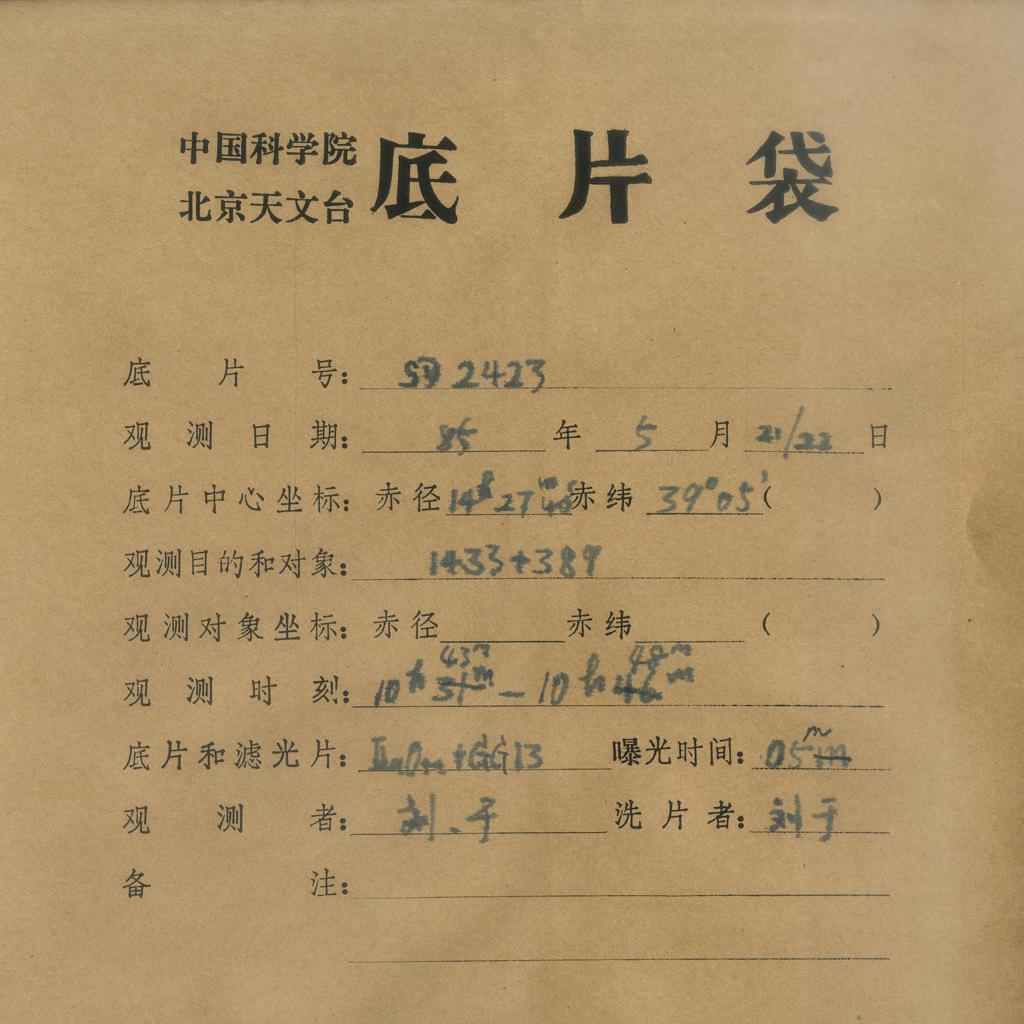 中国科学院
北京天文台
底片袋
底片号: 2423
观测日期: 85 年 5 月 21/22 日
底片中心坐标: 赤径 14h 27m 赤纬 39°05' ( )
观测目的和对象: 1433+389
观测对象坐标: 赤径 赤纬 ( )
观测时刻: 10h 43m — 10h 48m
底片和滤光片: +GG13 曝光时间: 05m
观测者: 刘、于 洗片者: 刘于
备注: